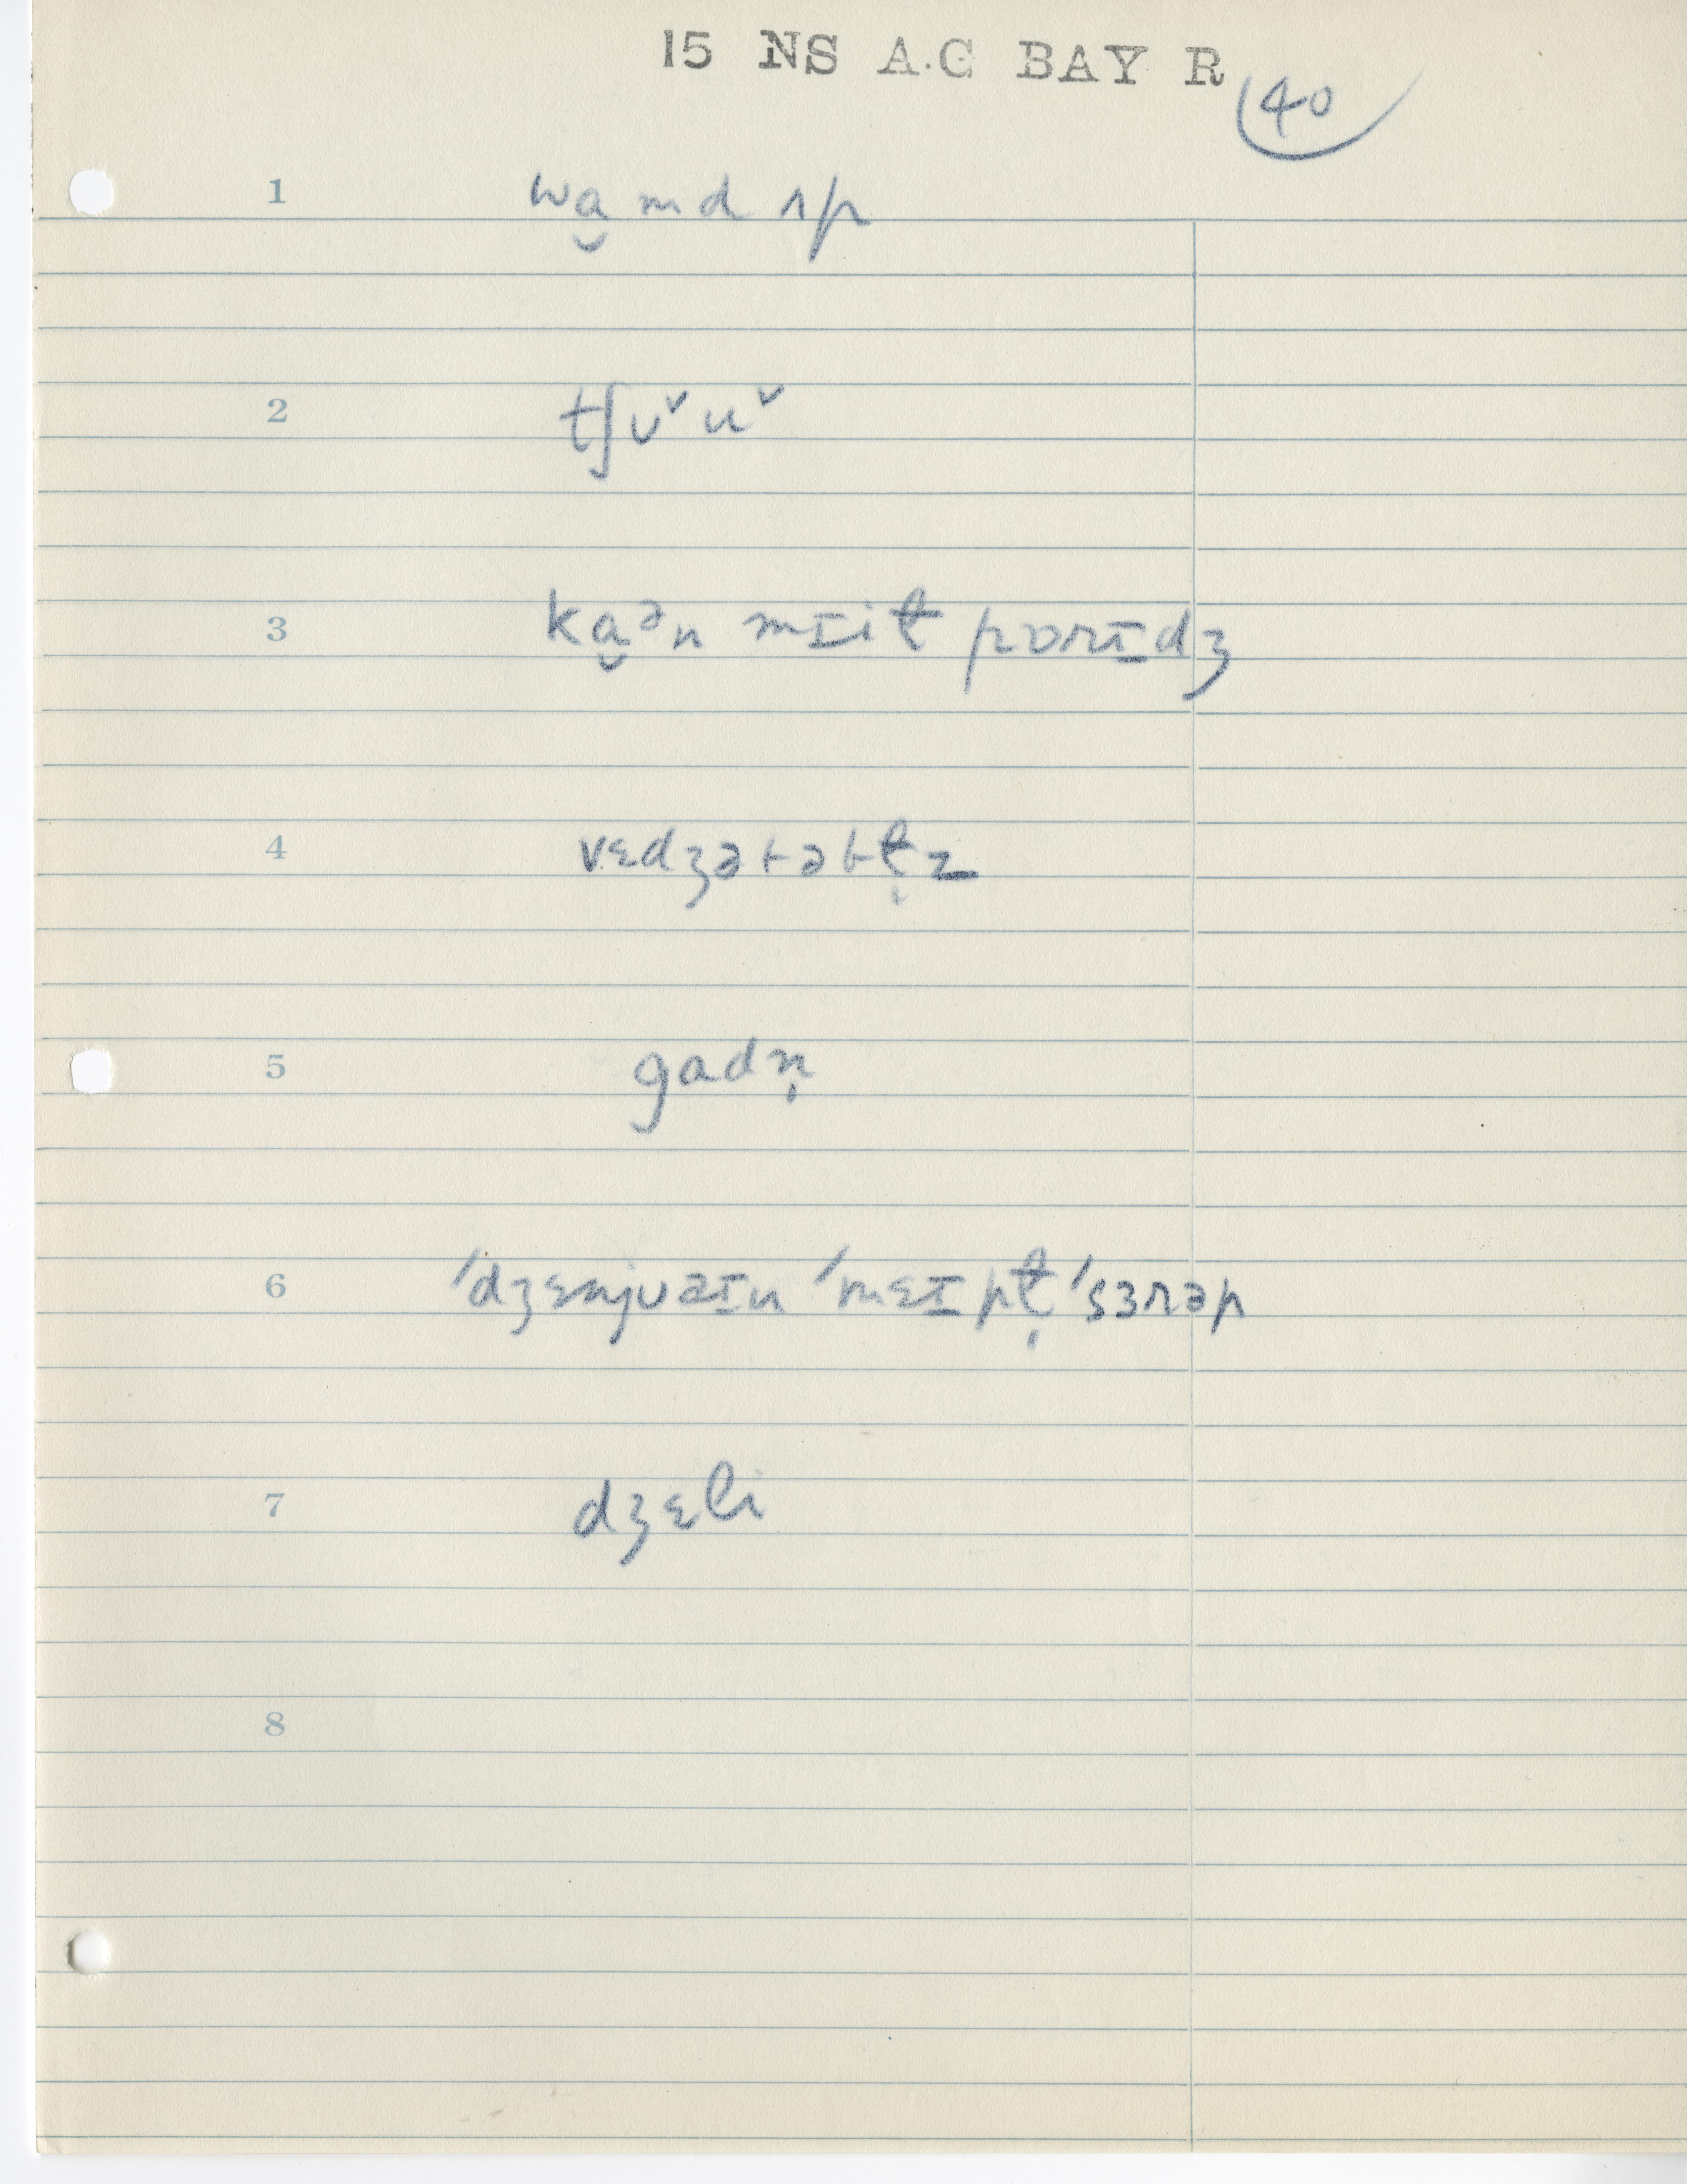 15 NS A.C BAY R
40
1 wa̬md ʌp
2 tʃʊˇuˇ
3 ka̬ᵊn mɪiɫ pɒrɪdʒ
4 vɛdʒətəbɫ̩z
5 gadn̩
6 ˈdʒɛnjuəɪn ˈmɛɪpɫ̩ ˈsɜrəp
7 dʒɛli
8